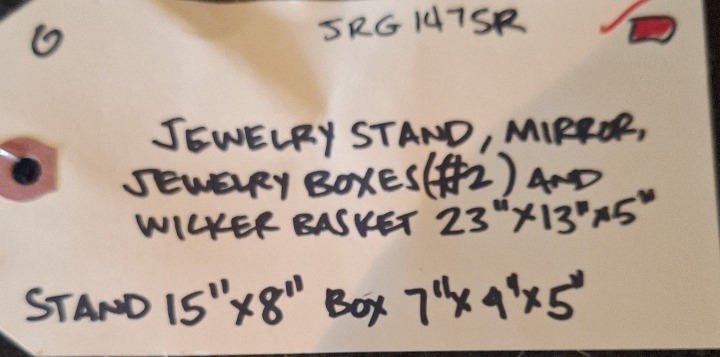 JRG 147SR
JEWELRY STAND, MIRROR,
JEWELRY BOXES(#2) AND
WICKER BASKET 23"X13"X5"
STAND 15"X8" BOX 7"X9"X5"